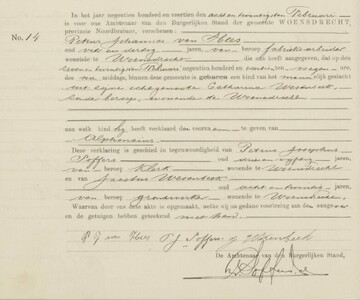 In het jaar negentien honderd en veertien den acht en twintigsten Februari
is voor ons Ambtenaar van den Burgerlijken Stand der gemeente WOENSDRECHT,
provincie Noordbrabant, verschenen:
No. 14
Petrus Johannes van
oud vier en dertig jaren, van beroep fabrieksarbeider
wonende te Woensdrecht die ons heeft aangegeven, dat op
Februari negentien honderd en veertien ure,
des middags, binnen deze gemeente is geboren een kind van het mannelijk geslacht
uit zijne echtgenoote Catharina
zonder beroep, wonende te Woensdrecht
aan welk kind hij heeft verklaard den voornaam te geven van
Alphonsius
Deze verklaring is geschied in tegenwoordigheid van Petrus Josephus
Soffers oud drie en vijftig jaren,
van beroep klerk wonende te Woensdrecht
en van Jacobus oud acht en twintig jaren,
van beroep grondwerker wonende te Woensdrecht
Waarvan door ons deze akte is opgemaakt, welke wij na gedane voorlezing aan den aangever
en de getuigen hebben geteekend met hen.
P J van P J Soffers J
De Ambtenaar van den Burgerlijken Stand,